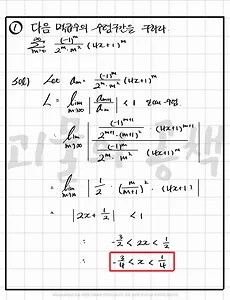 ① 다음 멱급수의 수렴구간을 구하라.
∞ Σ m=0 (-1)^m / 2^m · m² (4x+1)^m
sol) Let a_m = (-1)^m / 2^m · m² (4x+1)^m
L = lim m→∞ | a_{m+1} / a_m | < 1 으로 수렴.
= lim m→∞ | (-1)^{m+1} / 2^{m+1} · (m+1)² · (4x+1)^{m+1} / (-1)^m / 2^m · m² · (4x+1)^m |
= lim m→∞ | 1/2 · (m / m+1)² · (4x+1) |
= | 2x + 1/2 | < 1
∴ -3/2 < 2x < 1/2
∴ -3/4 < x < 1/4
괴물쥐 공책